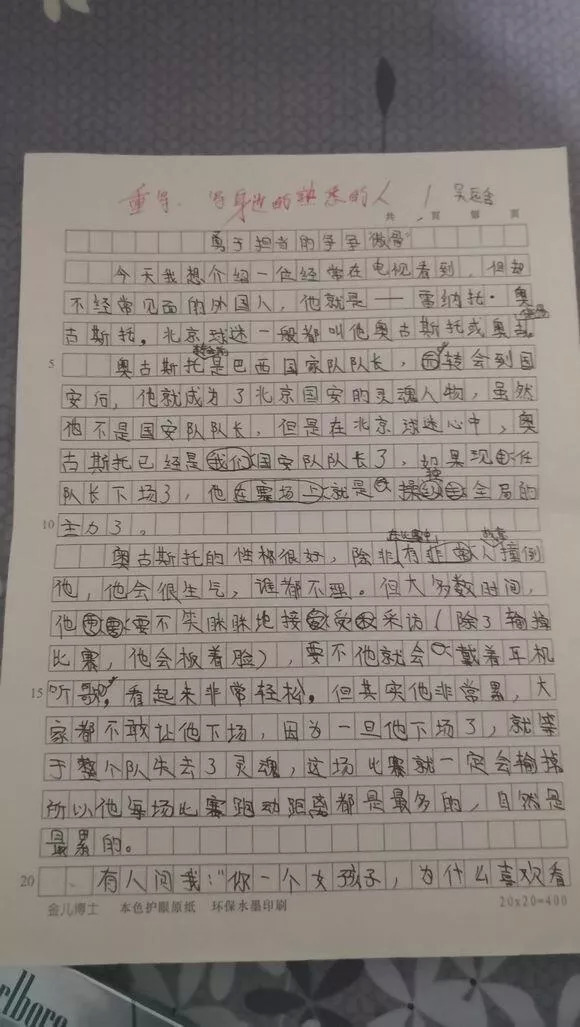 重写. 写身边的熟悉的人 ！
共 页 第 页
勇于担当的争争傲哥
今天我想介绍一位经常在电视看到，但却
不经常见面的外国人，他就是——雷纳托·奥
古斯托。北京球迷一般都叫他奥古斯托或奥
奥古斯托是巴西国家队队长，转会到国
安后，他就成为了北京国安的灵魂人物，虽然
他不是国安队队长，但是在北京球迷心中，奥
古斯托已经是我们国安队队长了，如果现任
队长下场了，他在赛场上就是操全局的
主力了。
奥古斯托的性格很好，除非有人撞倒
他，他会很生气，谁都不理。但大多数时间，
他要不笑眯眯地接受采访（除了输掉
比赛，他会板着脸），要不他就会戴着耳机
听歌，看起来非常轻松。但其实他非常累，大
家都不敢让他下场，因为一旦他下场了，就等
于整个队失去了灵魂，这场比赛就一定会输掉
所以他每场比赛跑动距离都是最多的，自然是
最累的。
有人问我：“你一个女孩子，为什么喜欢看
5
10
15
20
金儿博士 本色护眼原纸 环保水墨印刷 20x20=400
Marlboro